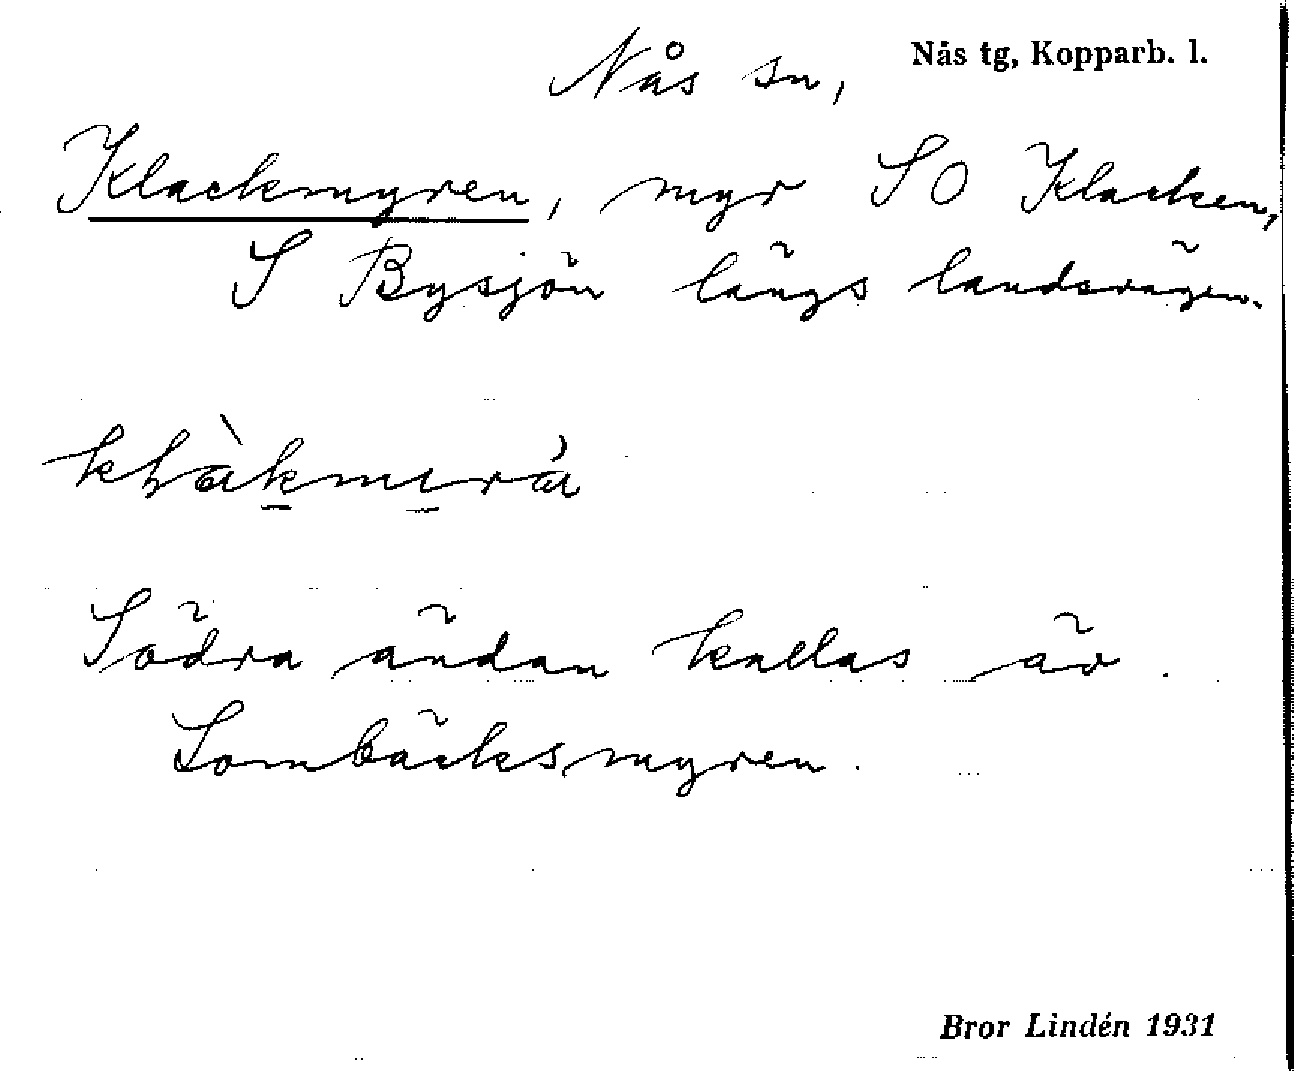 Nås sn, Nås tg, Kopparb. l.
Klackmyren, myr SO Klacken,
S Bysjön längs landsvägen.
Södra ändan kallas äv.
Lombäcksmyren.
Bror Lindén 1931